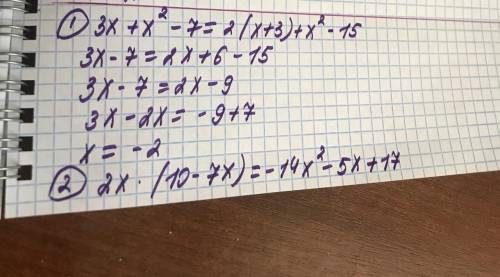 ① 3x + x² - 7 = 2(x+3) + x² - 15
3x - 7 = 2x + 6 - 15
3x - 7 = 2x - 9
3x - 2x = - 9 + 7
x = - 2
② 2x · (10 - 7x) = -14x² - 5x + 17